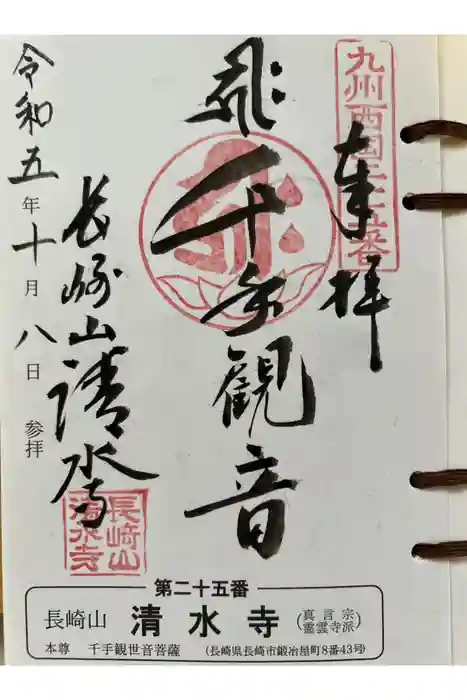 九州西国二十五番
奉拝
千手観音
長崎山清水寺
令和五年十月八日
参拝
長崎山
清水寺
第二十五番
長崎山 清水寺 (真言宗 霊雲寺派)
本尊 千手観世音菩薩 (長崎県長崎市鍛冶屋町8番43号)